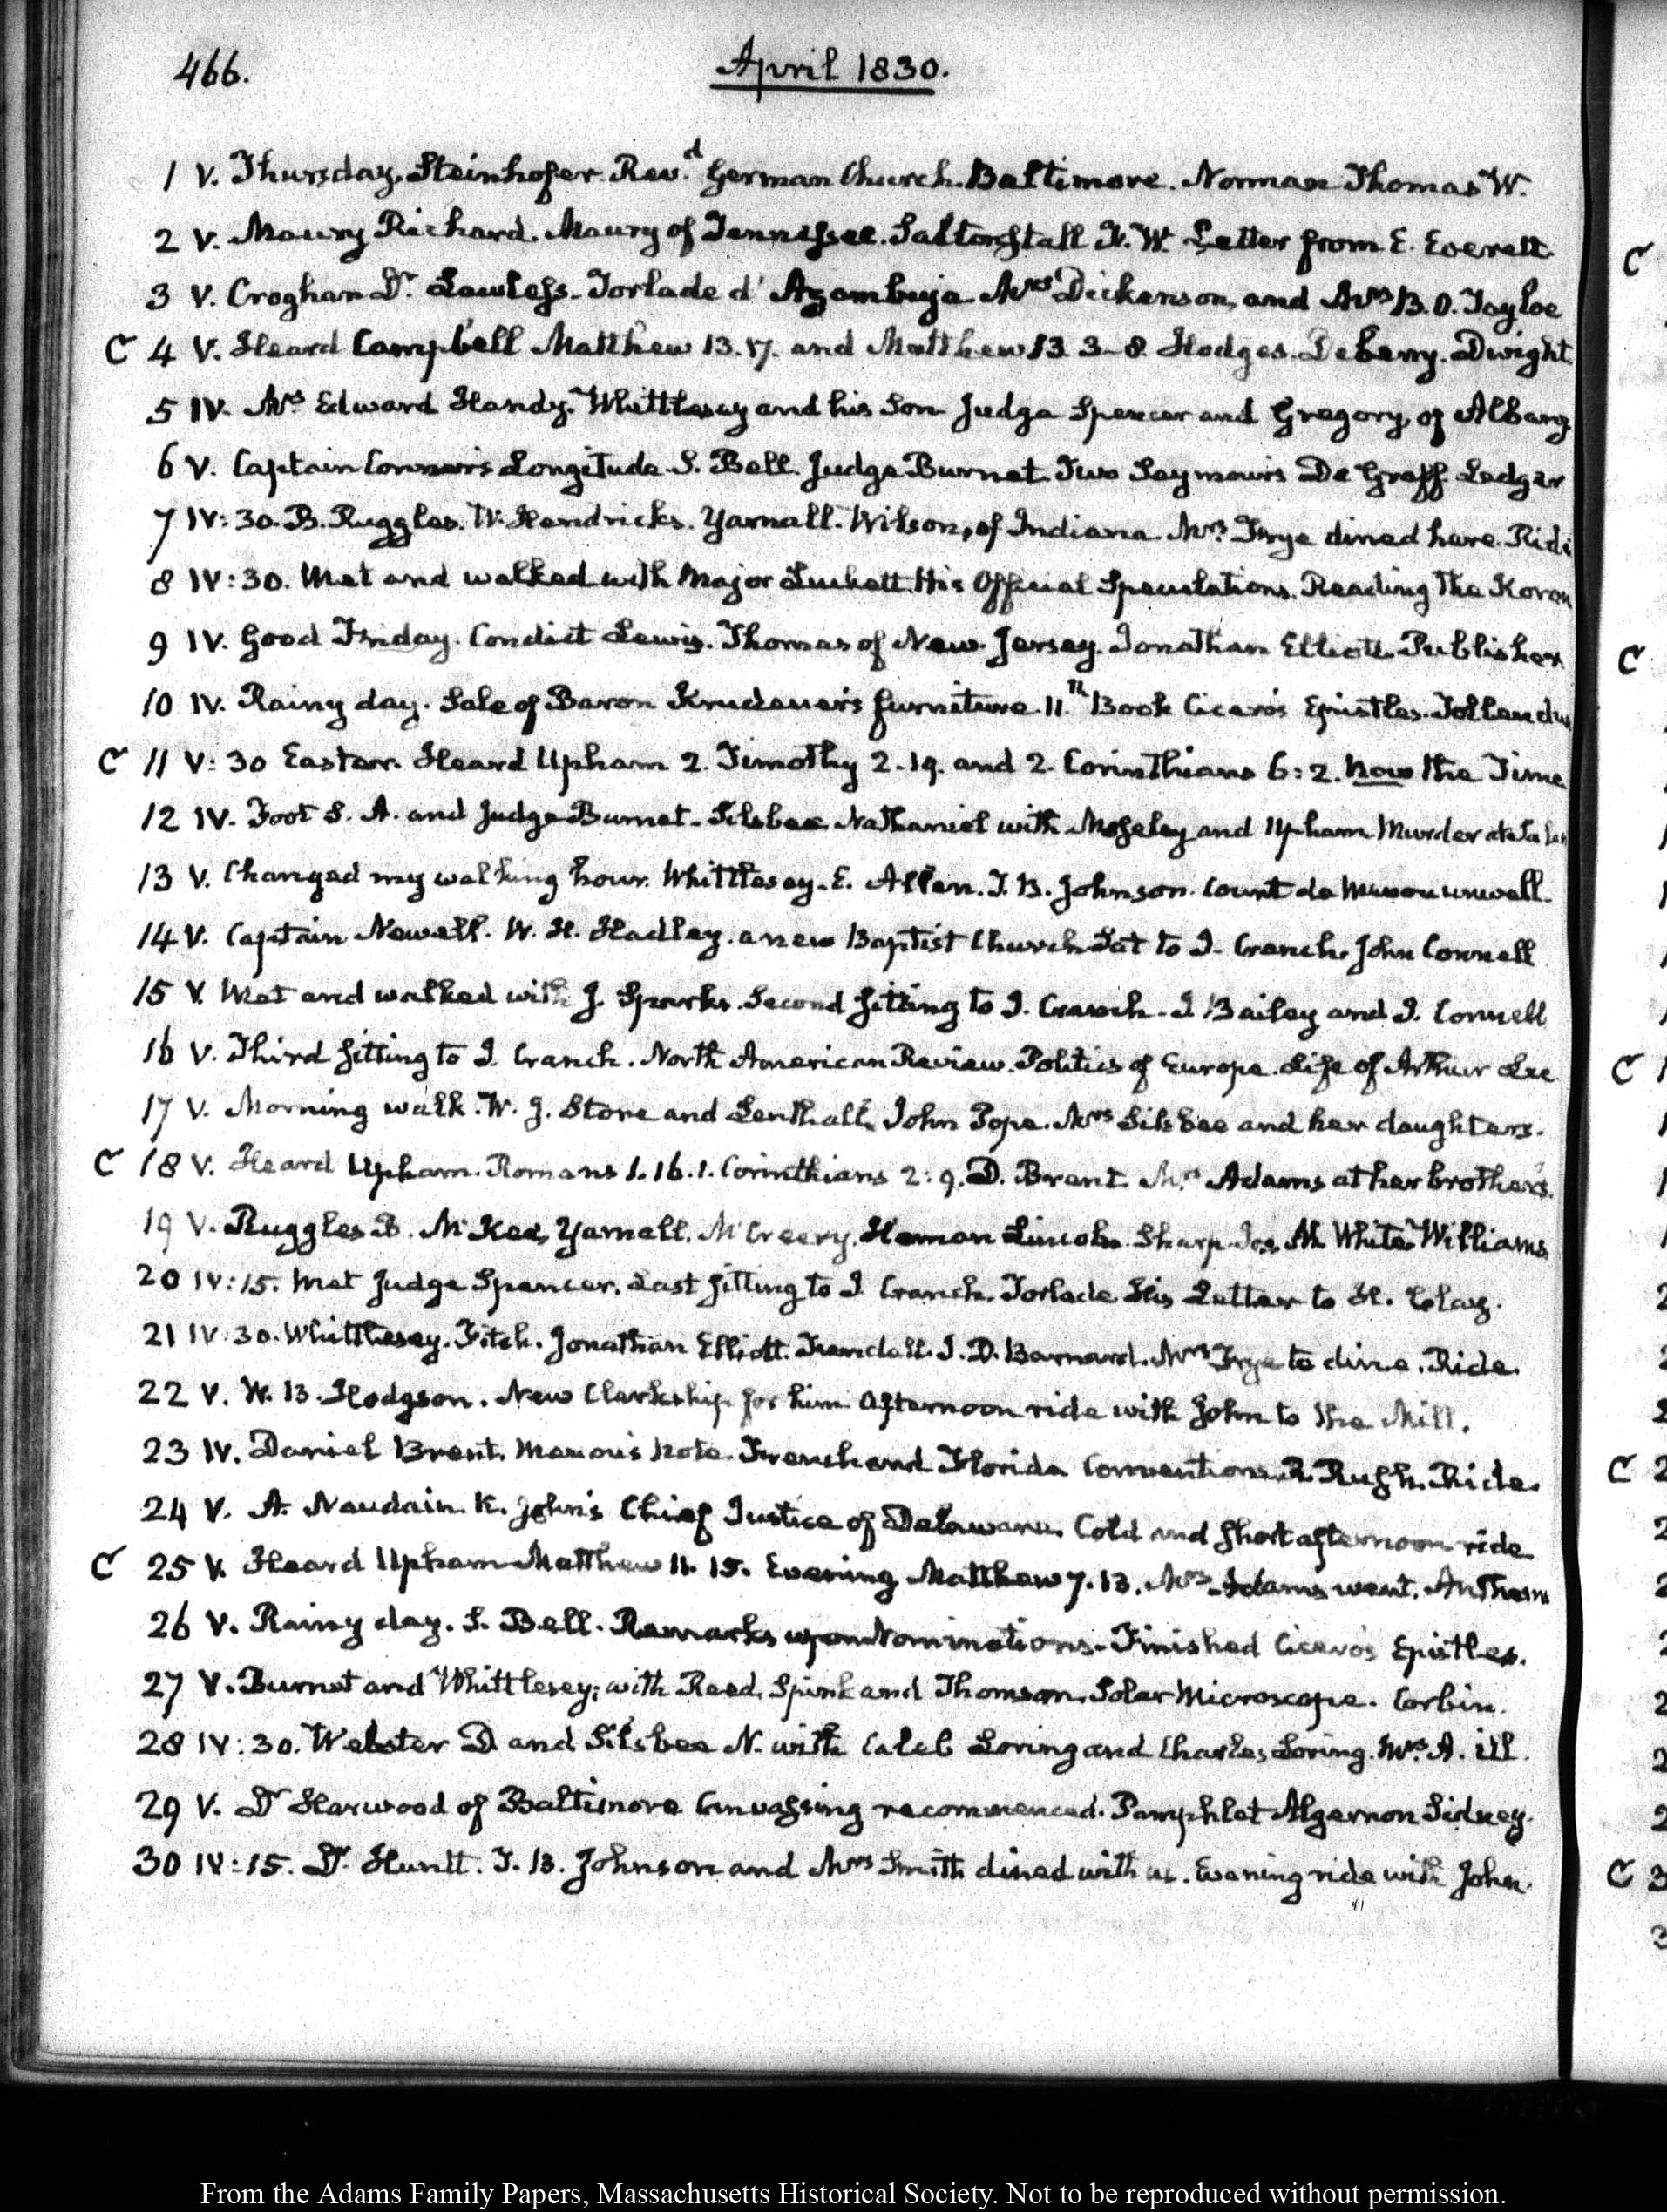 466.
April 1830.
1 V. Thursday. Steinhofer Revd. German Church. Baltimore. Norman Thomas W.
2 V. Maury Richard. Maury of Tennessee. Saltonstall N. W. Letter from E. Everett
3 V. Croghan Dr. Lawless. Torlade d'Azambuja Mrs Dickenson, and Mrs B. O. Tayloe
C 4 V. Heard Campbell Matthew 13. 17. and Matthew 13 3-8. Hodges. Deberry. Dwight
5 IV. Mrs Edward Handy. Whittlesey and his Son Judge Spencer and Gregory, of Albany
6 V. Captain Connor's Longitude S. Bell. Judge Burnet. Two Seymours De Graff Ledger
7 IV:30. B. Ruggles. W. Hendricks. Yarnall. Wilson, of Indiana. Mrs. Frye dined here. Ride
8 IV:30. Met and walked with Major Luckett. His Official Speculations. Reading the Koran
9 IV. Good Friday. Condict Lewis. Thomas of New Jersey. Jonathan Elliott Publisher
10 IV. Rainy day. Sale of Baron Krudener's furniture 11.th Book Cicero's Epistles.
C 11 V:30 Easter. Heard Upham 2. Timothy 2. 19. and 2. Corinthians 6:2. Now the Time
12 IV. Foot S. A. and Judge Burnet. Silsbee Nathaniel with Moseley and Upham Murder at
13 V. Changed my walking hour. Whittlesey. E. Allen. J. B. Johnson. Count de Menou unwell.
14 V. Captain Newell. W. H. Hadley. a new Baptist Church Sat to J. Cranch. John Connell
15 V. Met and walked with J. Sparks. Second sitting to J. Cranch. J Bailey and J. Connell
16 V. Third sitting to J. Cranch. North American Review. Politics of Europe. Life of Arthur Lee
17 V. Morning walk. W. J. Stone and Lenthall. John Pope. Mrs Silsbee and her daughters.
C 18 V. Heard Upham. Romans 1. 16. 1. Corinthians 2:9. D. Brent. Mrs Adams at her brother's.
19 V. Ruggles B. McKee, Yarnall. McCreery. Heman Lincoln. Sharp Jos. M. White Williams
20 IV:15. Met Judge Spencer. Last sitting to J Cranch. Torlade His Letter to H. Clay.
21 IV:30. Whittlesey. Fitch. Jonathan Elliott. Trundall. J. D. Barnard. Mrs Frye to dine. Ride.
22 V. W. B. Hodgson. New Clerkship for him Afternoon ride with John to the Mill.
23 IV. Daniel Brent. Menou's Note. French and Florida Conventions. R Rush. Ride.
24 V. A. Naudain. K. John's Chief Justice of Delaware. Cold and short afternoon ride
C 25 V. Heard Upham Matthew 11. 15. Evening Matthew 7. 13. Mrs Adams went. Anthem
26 V. Rainy day. S. Bell. Remarks upon Nominations. Finished Cicero's Epistles.
27 V. Burnet and Whittlesey; with Reed, Spink and Thomson. Solar Microscope. Corbin.
28 IV:30. Webster D. and Silsbee N. with Caleb Loring and Charles Loring. Mrs. A. ill.
29 V. Dr Harwood of Baltimore Canvassing recommenced. Pamphlet Algernon Sidney.
30 IV:15. Dr. Huntt. J. B. Johnson and Mrs Smith dined with us. Evening ride with John.
From the Adams Family Papers, Massachusetts Historical Society. Not to be reproduced without permission.